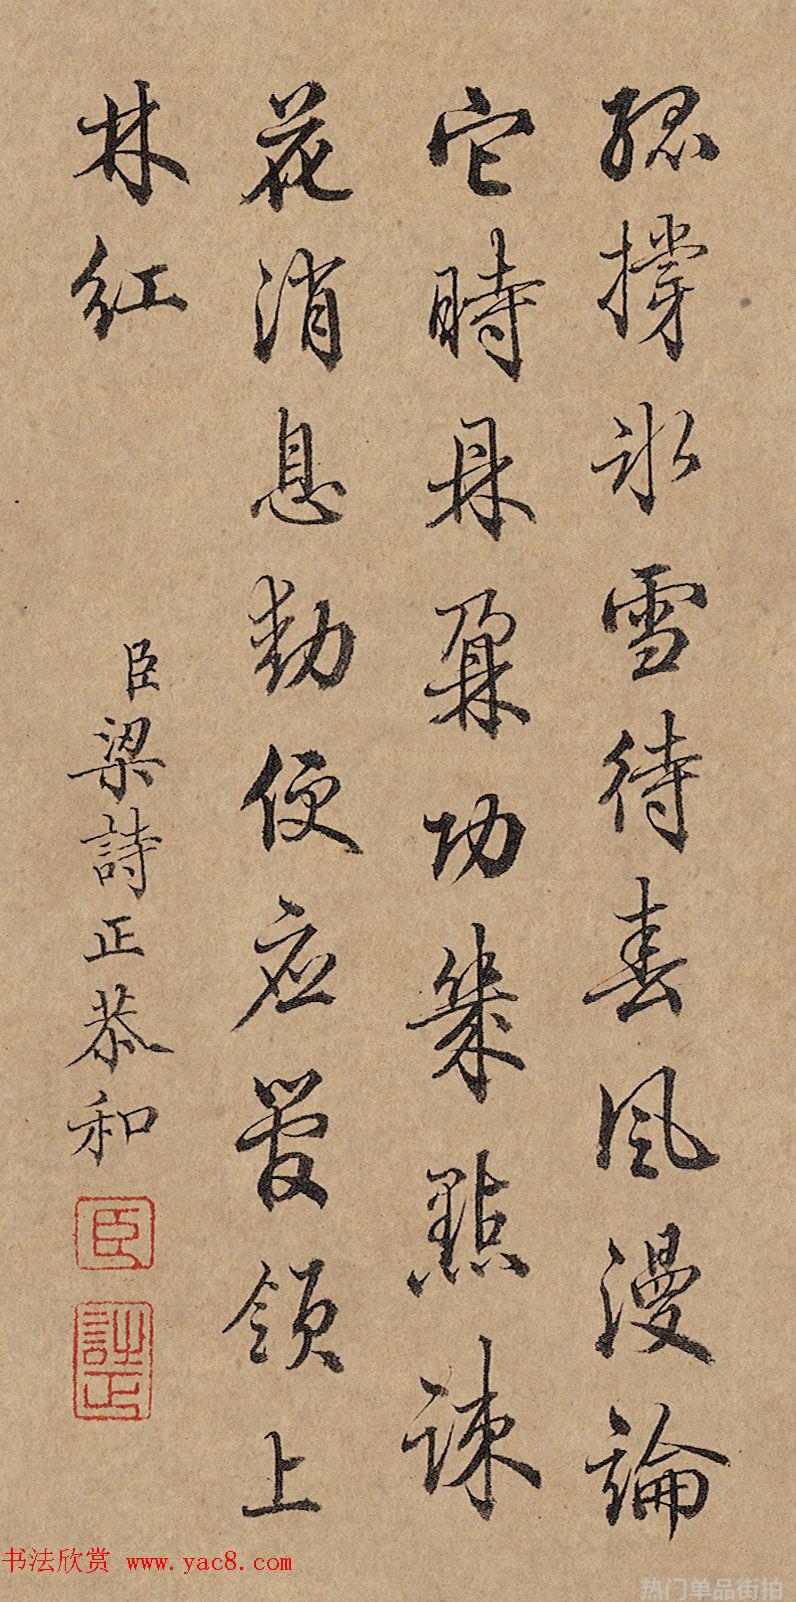 孤撐冰雪待春風漫論
它時鼎鼐功幾點疎
花消息動便应管領上
林紅
臣梁詩正恭和
臣
詩正
书法欣赏 www.yac8.com
热门单品街拍